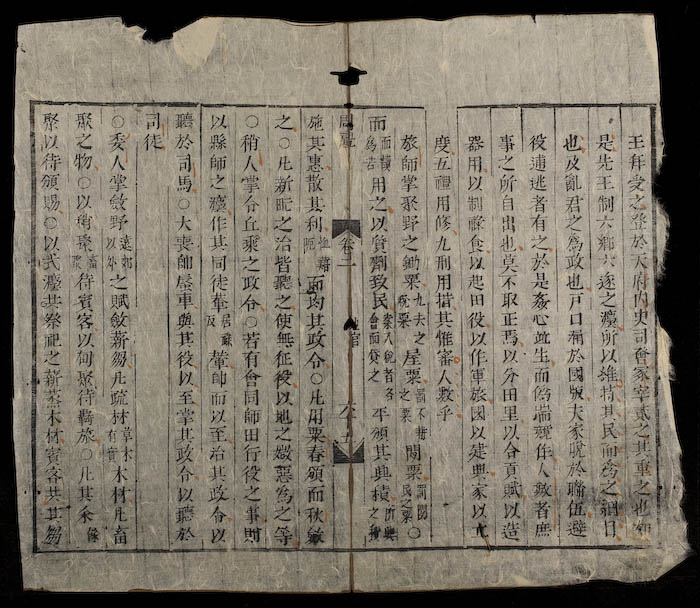 王拜受之登於天府内史司會冢宰貳之其重之也如
是先王制六鄉六遂之灋所以維持其民而為之綱目
也及亂君之為政也戶口漏於國版夫家脫於聯伍避
役逋逃者有之於是姦心竝生而偽端競作人數者庶
事之所自出也莫不取正焉以分田里以令貢賦以造
器用以制祿食以起田役以作軍旅國以建典家以立
度五禮用修九刑用措其惟審人數乎
旅師掌聚野之鋤粟九夫之稅粟屋粟罰不耕之粟閒粟罰閒民之粟○
而而讀為若用之以質劑致民案入稅者名會而貸之平頒其興積所興之積
周禮
卷二
地官
六十五
施其惠散其利而均其政令○凡用粟春頒而秋斂
之○凡新甿之治皆聽之使無征役以地之媺惡為之等
○稍人掌令丘乘之政令○若有會同師田行役之事則
以縣師之灋作其同徒輂居反輦帥而以至治其政令以
聽於司馬○大喪帥蜃車與其役以至掌其政令以聽於
司徒
○委人掌斂野遠郊以外之賦斂薪芻凡疏材草木有實木材凡畜
聚之物○以稍聚畜聚待賓客以甸聚待羇旅○凡其余餘
聚以待頒賜○以式灋共祭祀之薪蒸木材賓客共其芻